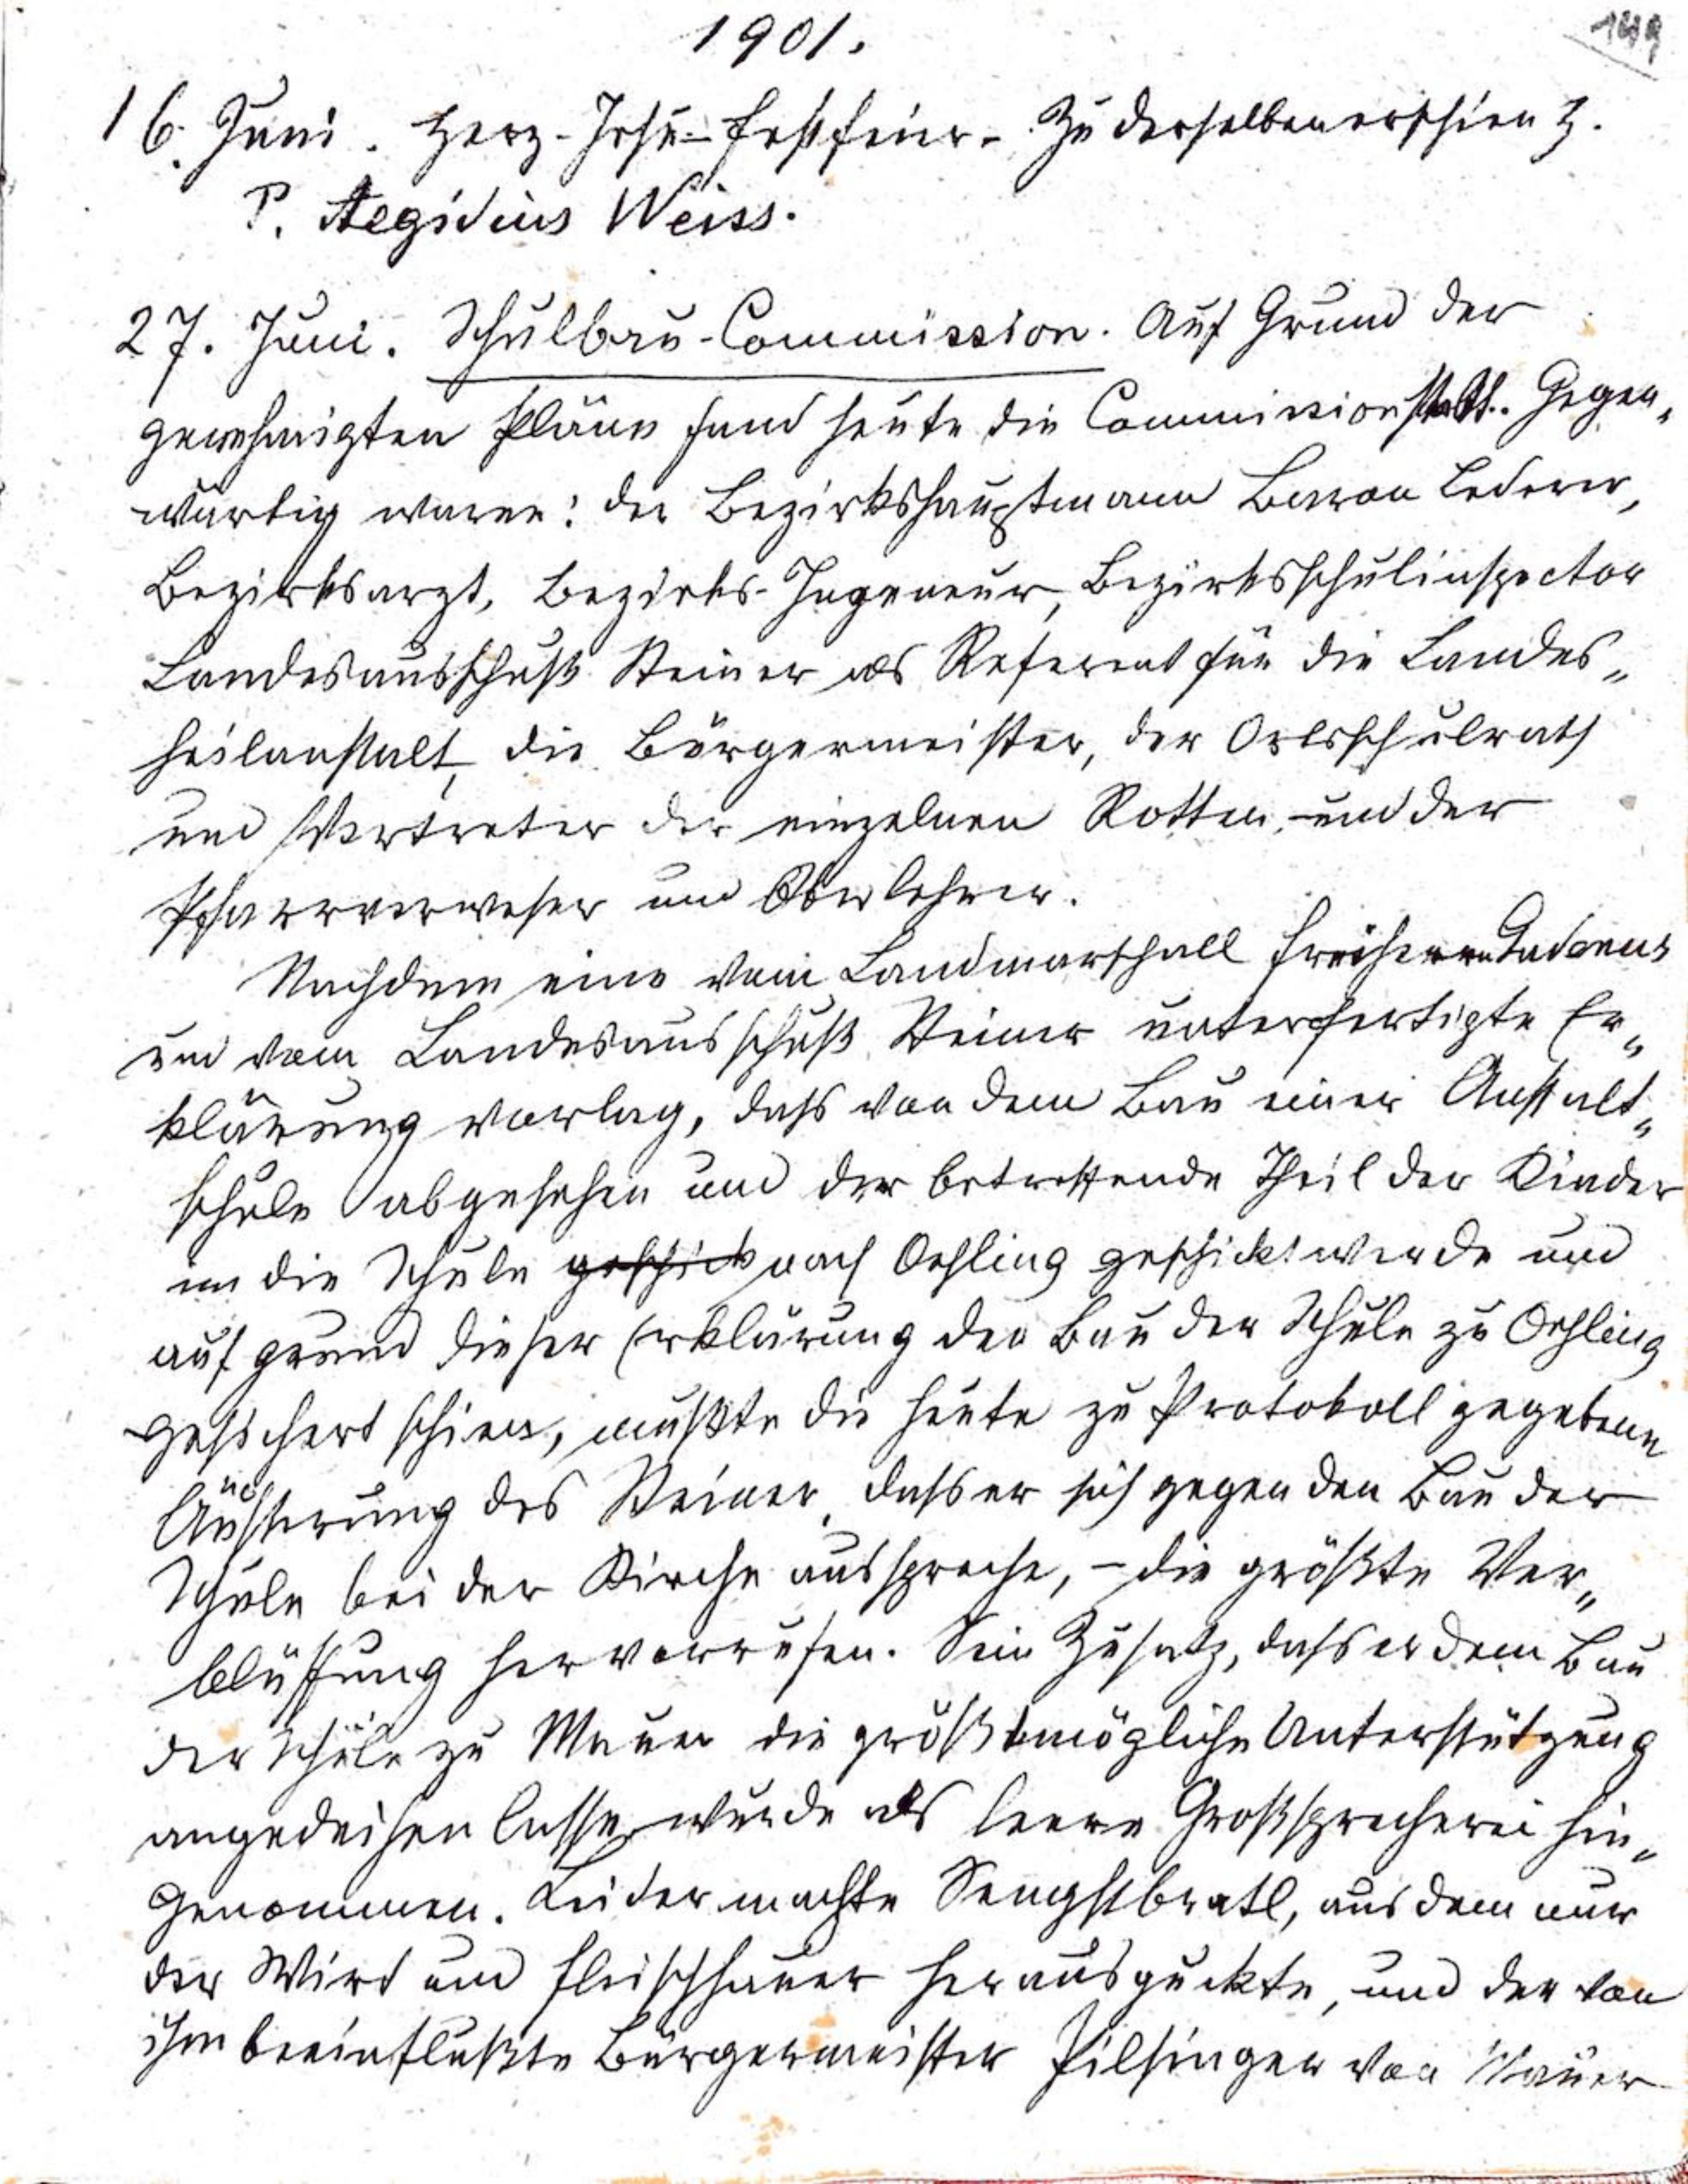 1901.
149
16. Juni. Herz-Jesu-Festfeier. Zu derselben erschien H.
P. Aegidius Weiss.
27. Juni. Schulbau-Commission. Auf Grund der
genehmigten Pläne fand heute die Commission statt. Gegen„
wärtig waren: der Bezirkshauptmann Baron Lederer,
Bezirksarzt, Bezirks-Ingeneur, Bezirksschulinspector
Landesausschuß Steiner als Referent für die Landes„
heilanstalt, die Bürgermeister, der Ortsschulrath
und Vertreter der einzelnen Rotten, und der
Pfarrverweser und Oberlehrer.
Nachdem eine vom Landmarschall Freiherrn Gudenus
und vom Landesausschuß Steiner unterfertigte Er„
klärung vorlag, dass von dem Bau einer Anstalt„
schule abgesehen und der betreffende Theil der Kinder
in die Schule geschickt nach Oehling geschickt werde und
auf grund dieser Erklärung der Bau der Schule zu Oehling
gesichert schien, mußte die heute zu Protokoll gegebene
Äußerung des Steiner, dass er sich gegen den Bau der
Schule bei der Kirche ausspreche, – die größte Ver„
blüffung hervorrufen. Sein Zusatz, dass er dem Bau
der Schule zu Mauer die größtmögliche Unterstützung
angedeihen lasse, wurde als leere Großsprecherei hin„
genommen. Leider machte Sengstbratl, aus dem nur
der Wirt und Fleischhauer herausguckte, und der von
ihm beeinflußte Bürgermeister Pilsinger von Mauer